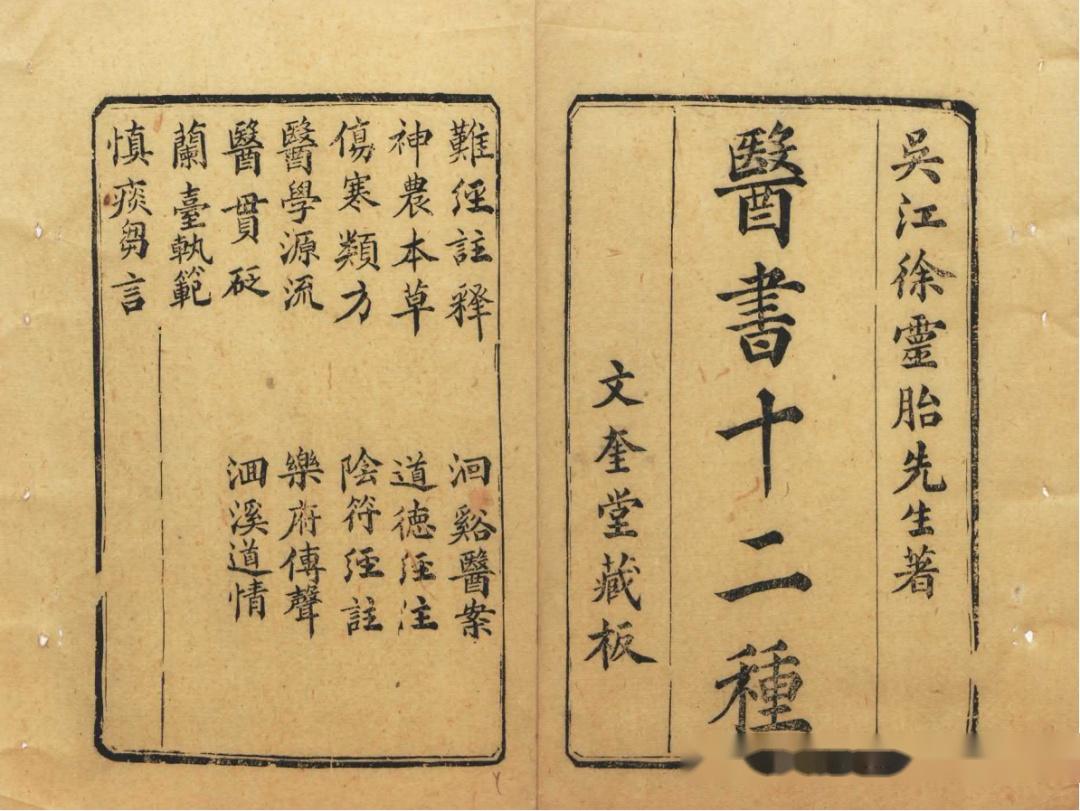 吳江徐靈胎先生著
醫書十二種
文奎堂藏板
難經註釋
神農本草
傷寒類方
醫學源流
醫貫砭
蘭臺執範
慎疾芻言
洄谿醫案
道德經注
陰符經註
樂府傳聲
洄溪道情